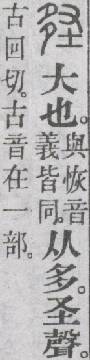 大也。與恢音
義皆同。
从多。圣聲。
古回切。古音在一部。